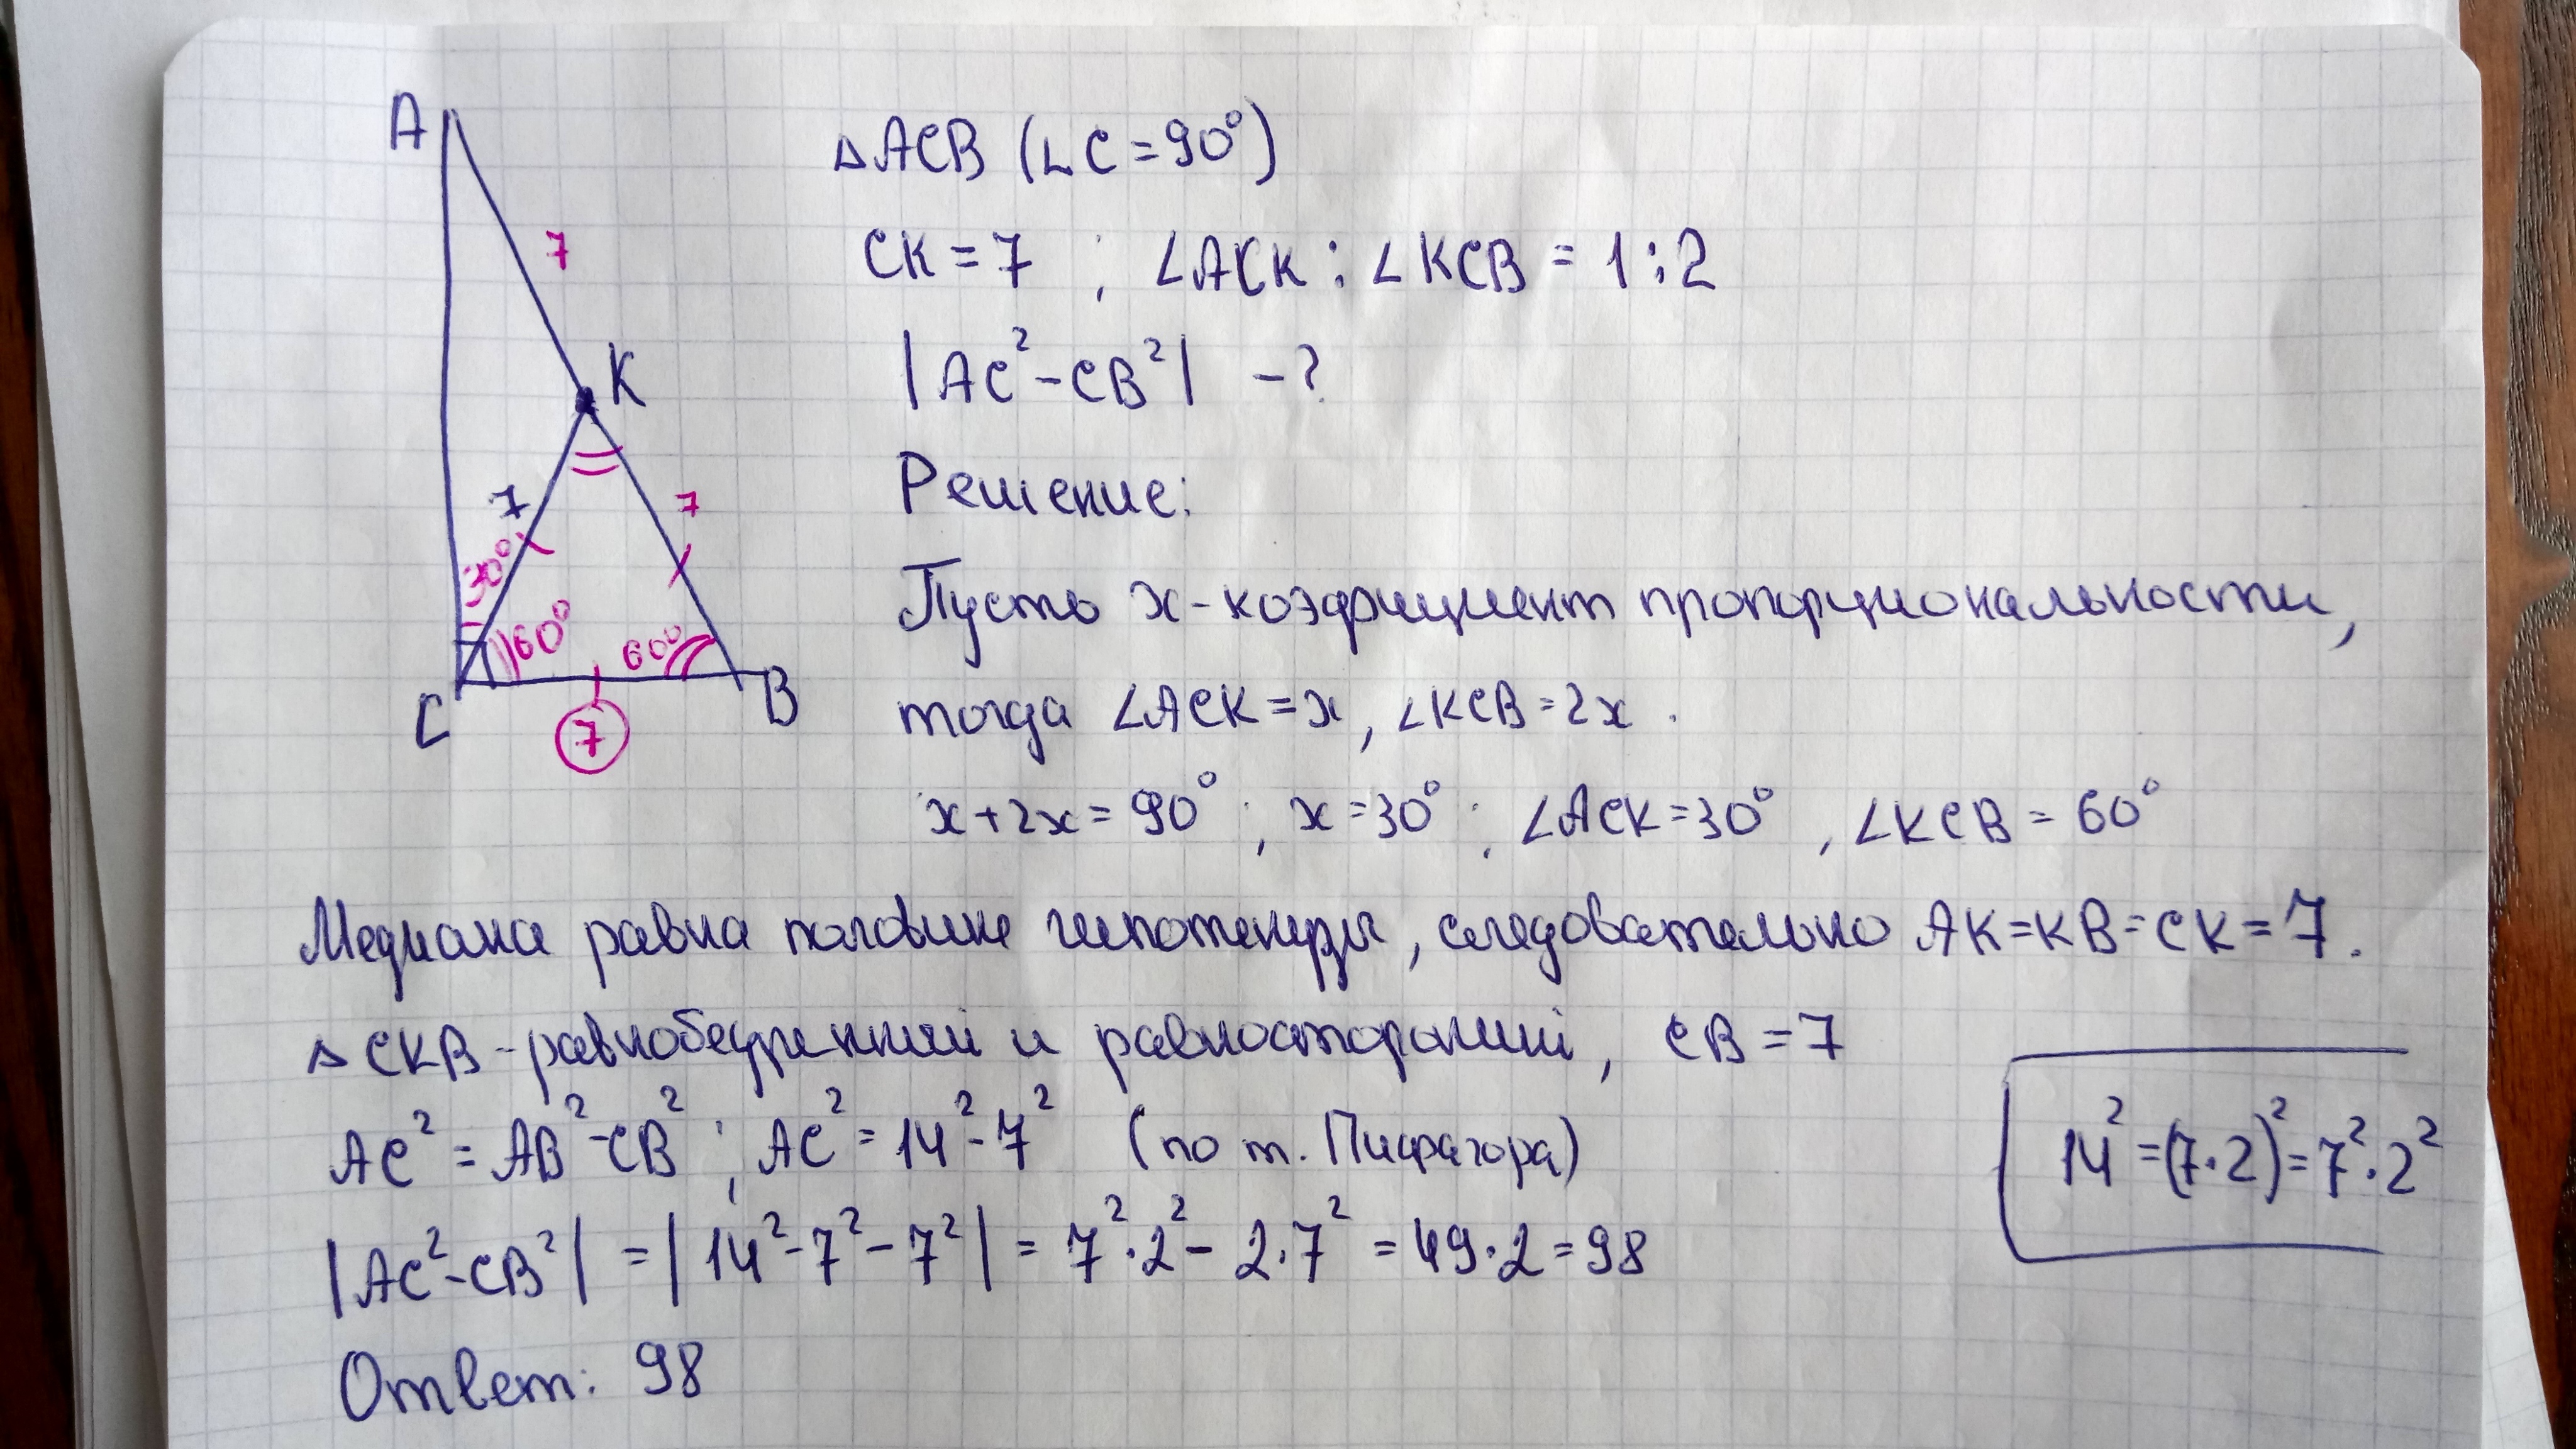 A
K
C
B
7
7
7
7
30°
60°
60°
△ACB (∟C=90°)
CK = 7 ; ∠ACK : ∠KCB = 1:2
|AC²-CB²| -?
Решение:
Пусть x-коэффициент пропорциональности,
тогда ∠ACK=x, ∠KCB=2x.
x+2x=90°; x=30°; ∠ACK=30°, ∠KCB=60°
Медиана равна половине гипотенузы, следовательно AK=KB=CK=7.
△CKB-равнобедренный и равносторонний, CB=7
AC²=AB²-CB²; AC²=14²-7² (по т. Пифагора)
14²=(7·2)²=7²·2²
|AC²-CB²|=|14²-7²-7²|=7²·2²-2·7²=49·2=98
Ответ: 98